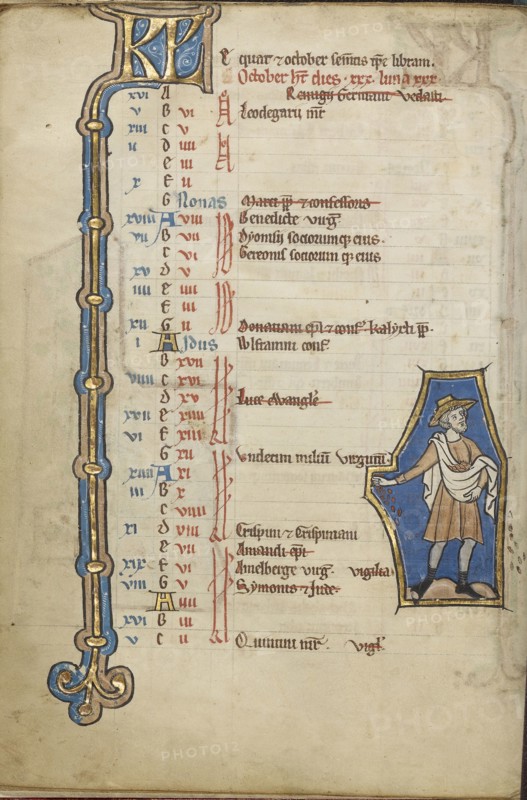 KL
Equat & october semis qe libram.
October ht dies · xxx · luna xxx·
xvi A Remigii Germani Vedasti
v B vi Leodegarii mr
xiii C v
ii d iiii
e iii
x F ii
G Nonas Marci pp & confessoris
xviii A viii Benedicte virg
vii B vii Dyonisii sociorumq; eius·
C vi Gereonis sociorumq; eius
xv d v
iiii e iiii
F iii
xii G ii Donatiani epi & conf Kalixti pp·
i A Idus Wlframni conf·
B xvii
viiii C xvi
d xv Luce Evangle
xvii e xiiii
vi F xiii
G xii Undecim milium Virginum
xiiii A xi
iii B x
C viiii
xi d viii Crispini & Crispiniani
e vii Amandi epi
xix F vi Amelberge virg· vigilia
viii G v Symonis & Iude·
A iiii
xvi B iii
v C ii Quintini mr· vigl·
PHOTO12